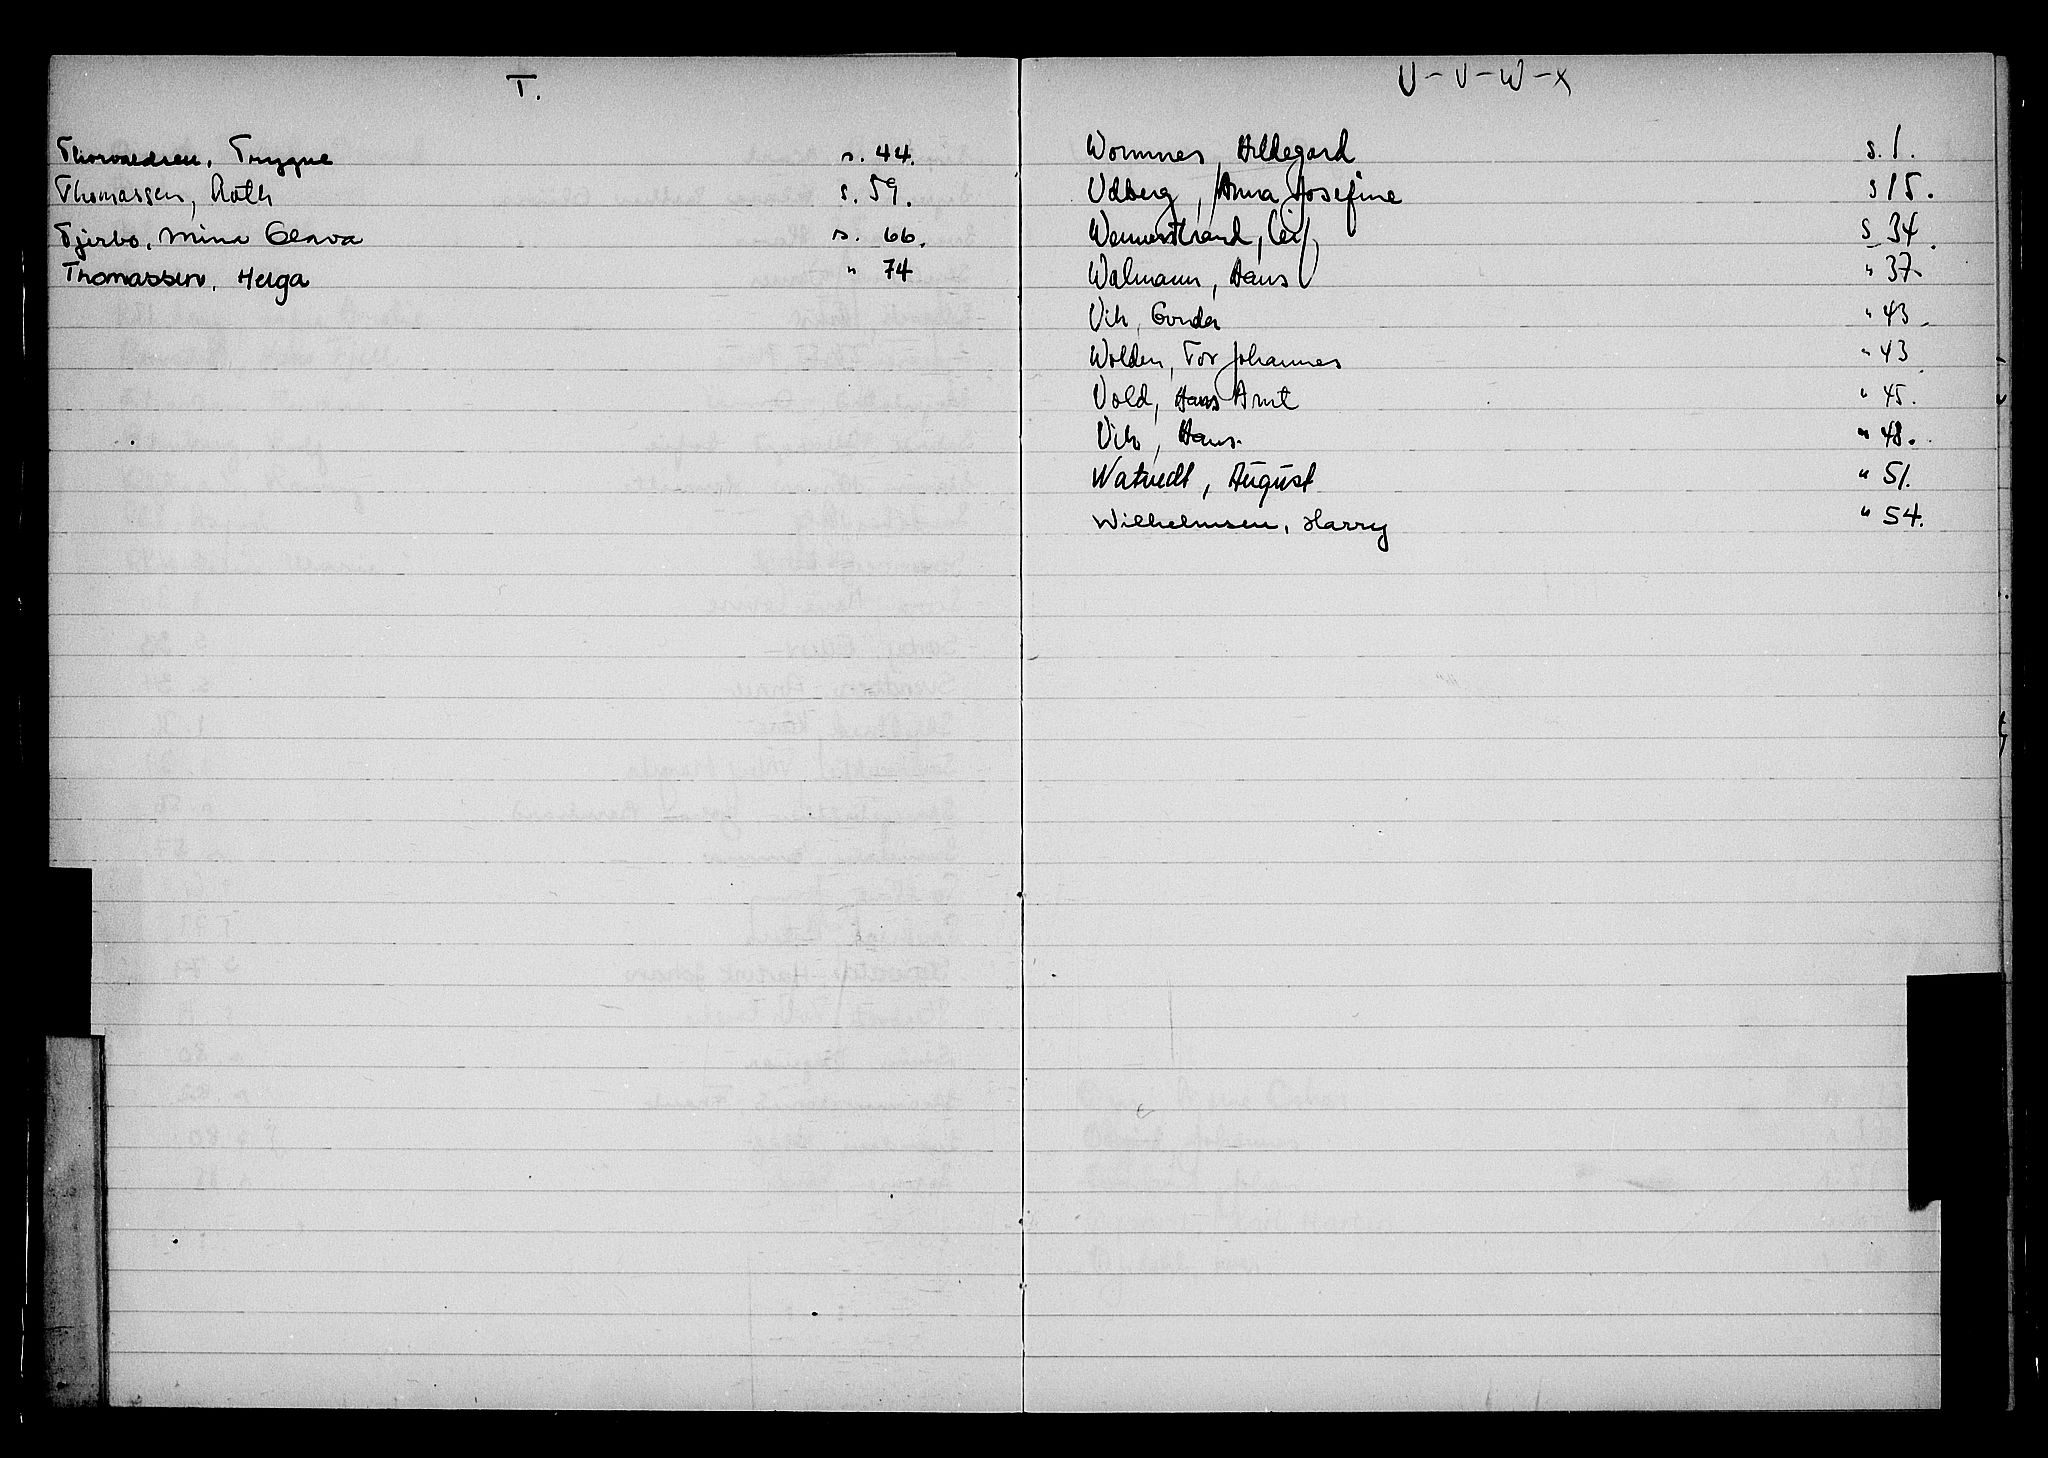 T.
Thorvaldsen, Trygve s. 44.
Thomassen, Ruth s. 59.
Tjirbo, Mina Olava s. 66.
Thomassen, Helga " 74
U - V - W - X
Wormnes, Hildegard s. 1.
Udberg, Anna Josefine s 15.
Wennerstrand, Leif s 34.
Walmann, Hans " 37.
Vik, Gunda " 43.
Wolden, Tor Johannes " 43.
Vold, Hans Arnt " 45.
Vik, Hans. " 48.
Watvedt, August " 51.
Wilhelmsen, Harry " 54.